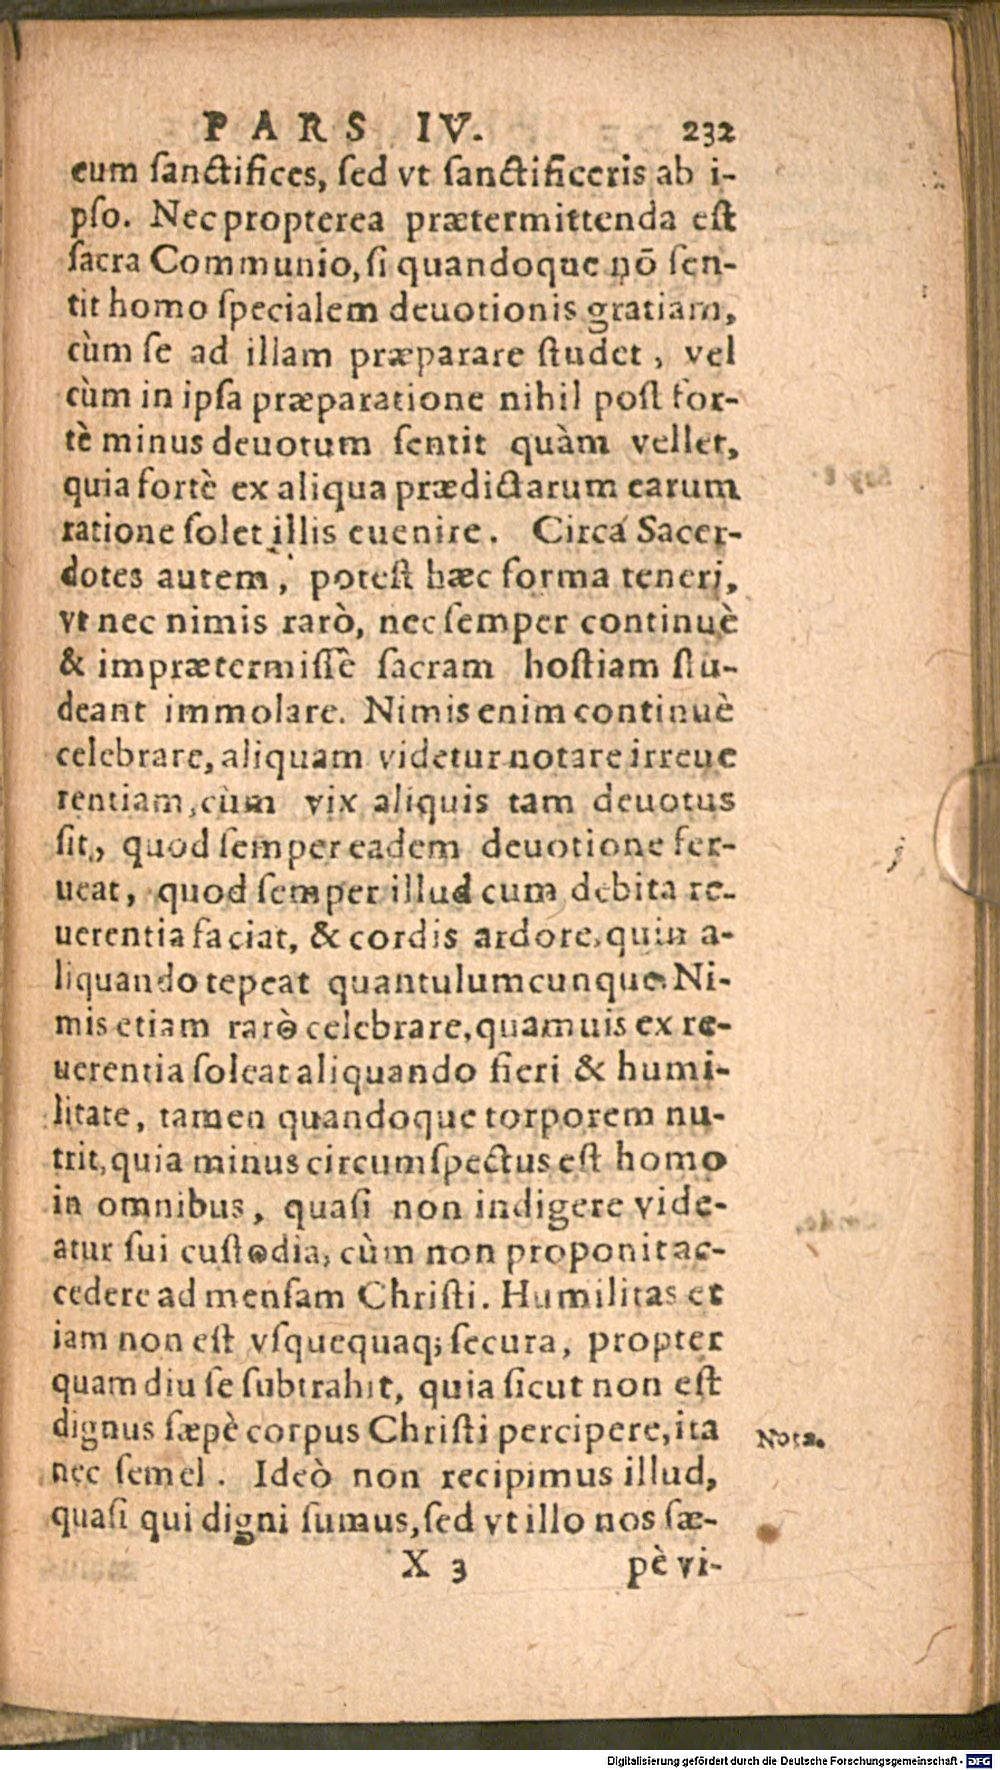 PARS IV. 232
eum ſanctifices, ſed vt ſanctificeris ab i-
pſo. Nec propterea prætermittenda eſt
ſacra Communio, ſi quandoque nō ſen-
tit homo ſpecialem deuotionis gratiam,
cùm ſe ad illam præparare ſtudet, vel
cùm in ipſa præparatione nihil poſt for-
tè minus deuotum ſentit quàm vellet,
quia fortè ex aliqua prædictarum earum
ratione ſolet illis euenire. Circa Sacer-
dotes autem, poteſt hæc forma teneri,
vt nec nimis rarò, nec ſemper continuè
& imprætermiſſè ſacram hoſtiam ſtu-
deant immolare. Nimis enim continuè
celebrare, aliquam videtur notare irreue
rentiam, cùm vix aliquis tam deuotus
ſit, quod ſemper eadem deuotione fer-
ueat, quod ſemper illud cum debita re-
uerentia faciat, & cordis ardore, quin a-
liquando tepeat quantulumcunque. Ni-
mis etiam rarò celebrare, quamuis ex re-
uerentia ſoleat aliquando fieri & humi-
litate, tamen quandoque torporem nu-
trit, quia minus circumſpectus eſt homo
in omnibus, quaſi non indigere vide-
atur ſui cuſtodia, cùm non proponit ac-
cedere ad menſam Chriſti. Humilitas et
iam non eſt vſquequaq; ſecura, propter
quam diu ſe ſubtrahit, quia ſicut non eſt
dignus ſæpè corpus Chriſti percipere, ita
Nota.
nec ſemel. Ideò non recipimus illud,
quaſi qui digni ſumus, ſed vt illo nos ſæ-
X 3 pè vi-
Digitalisierung gefördert durch die Deutsche Forschungsgemeinschaft - DFG